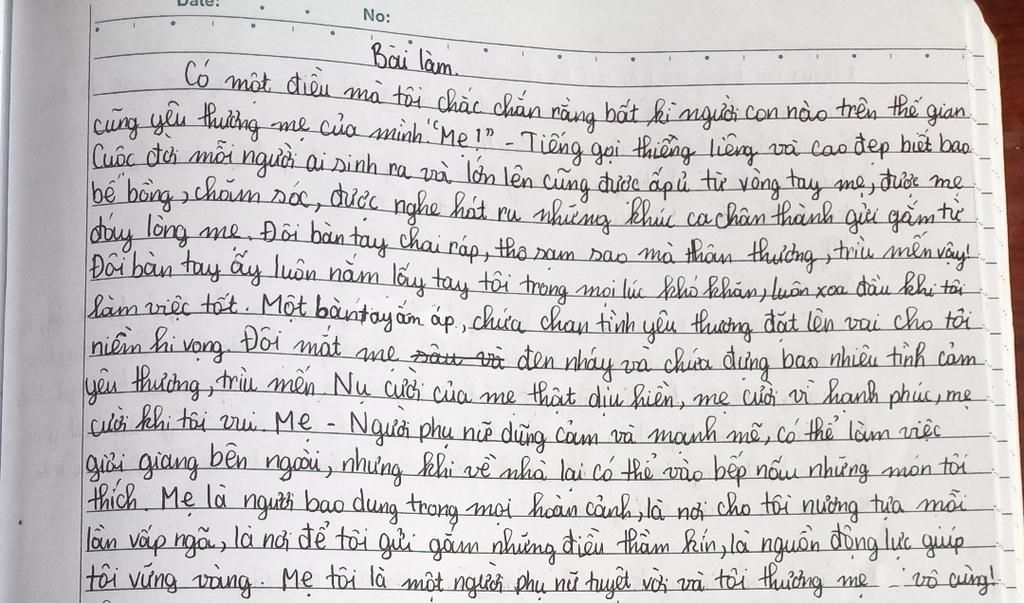 Date:
No:
Bài làm.
Có một điều mà tôi chắc chắn rằng bất kì người con nào trên thế gian
cũng yêu thương mẹ của mình. "Mẹ!" - Tiếng gọi thiêng liêng và cao đẹp biết bao.
Cuộc đời mỗi người ai sinh ra và lớn lên cũng được ấp ủ từ vòng tay mẹ, được mẹ
bế bồng, chăm sóc, được nghe hát ru những khúc ca chân thành gửi gắm từ
đáy lòng mẹ. Đôi bàn tay chai ráp, thô sạm sao mà thân thương, trìu mến vậy!
Đôi bàn tay ấy luôn nắm lấy tay tôi trong mọi lúc khó khăn, luôn xoa đầu khi tôi
làm việc tốt. Một bàn tay ấm áp, chứa chan tình yêu thương đặt lên vai cho tôi
niềm hi vọng. Đôi mắt mẹ sâu và đen nháy và chứa đựng bao nhiêu tình cảm
yêu thương, trìu mến. Nụ cười của mẹ thật dịu hiền, mẹ cười vì hạnh phúc, mẹ
cười khi tôi vui. Mẹ - Người phụ nữ dũng cảm và mạnh mẽ, có thể làm việc
giỏi giang bên ngoài, nhưng khi về nhà lại có thể vào bếp nấu những món tôi
thích. Mẹ là người bao dung trong mọi hoàn cảnh, là nơi cho tôi nương tựa mỗi
lần vấp ngã, là nơi để tôi gửi gắm những điều thầm kín, là nguồn động lực giúp
tôi vững vàng. Mẹ tôi là một người phụ nữ tuyệt vời và tôi thương mẹ vô cùng!